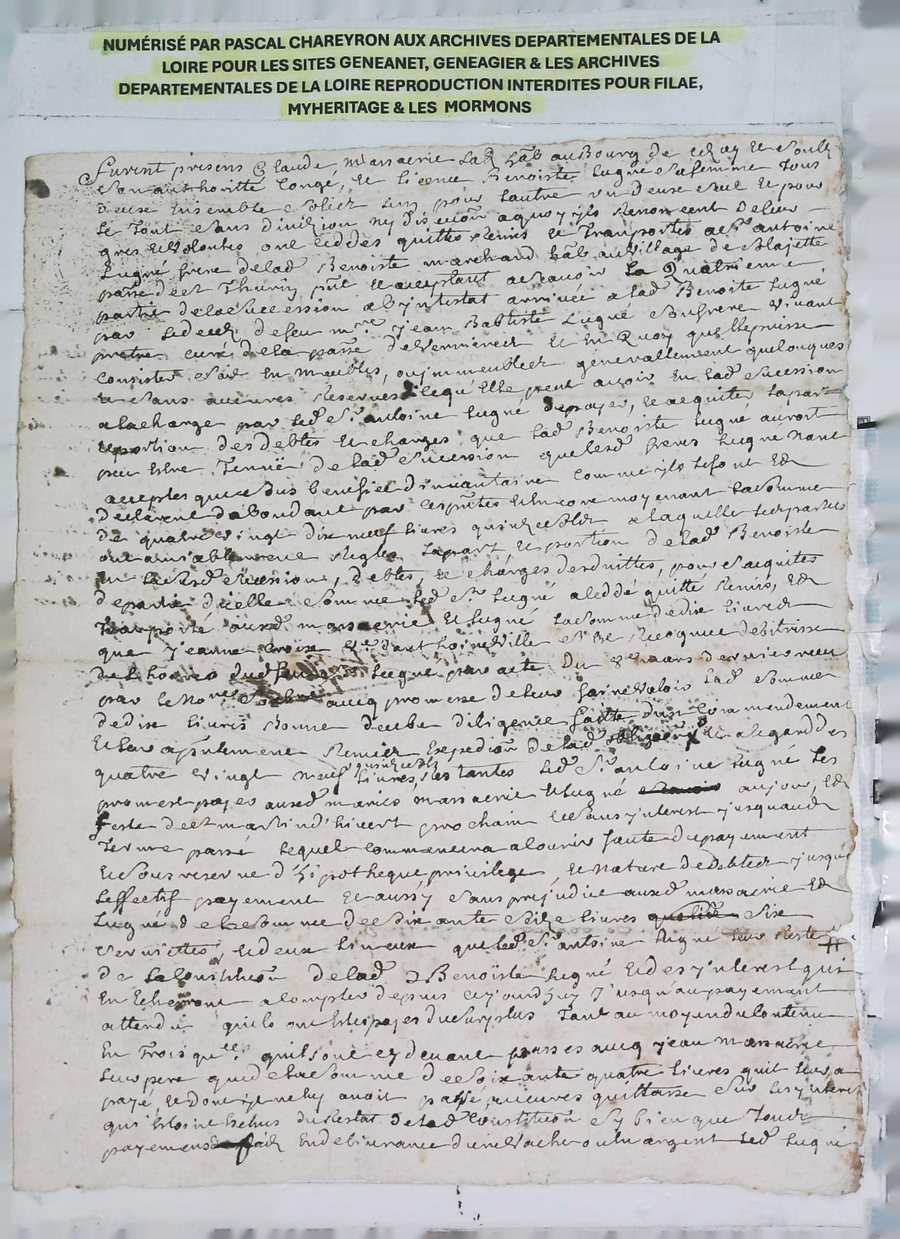 NUMÉRISÉ PAR PASCAL CHAREYRON AUX ARCHIVES DEPARTEMENTALES DE LA
LOIRE POUR LES SITES GENEANET, GENEAGIER & LES ARCHIVES
DEPARTEMENTALES DE LA LOIRE REPRODUCTION INTERDITES POUR FILAE,
MYHERITAGE & LES MORMONS
Furent presens Claude massacrie Lab. hãb. au Bourg de et soubz
son authoritte Congé, et licence Benoiste Lugne sa femme Tous
deux Ensemble un pour lautre un deux seul et pour
le Tout sans division ny discution a quoy ils Renoncent De leur
gres et Volontes ont ceddés quittes Remis et Transportes a Sr antoine
Lugné frere de lad. Benoiste marchand hãb. au Village de
parre de st Thurin pñt et acceptant a scavoir La Quatrieme
partie de la succession abyntestat arrivée a lad. Benoiste Lugné
par le deces de feu mre jean Baptiste Lugné son frere vivant
pretre curé de la parre de et En Quoy quelle puisse
Consister soit En meubles, ou jmmeubles generallement quelconques
et sans aucunes Reserves lequ'Elle peut avoir En lad. succession
a la charge par led. Sr antoine lugné de payer, et acquiter la part
et portion des debtes et charges que lad. Benoiste Lugné auroit
peu Estre Tenuë de lad. succession que lesd. freres lugne nont
acceptes que sous benefice d'inventaire comme ils le font et
declarent dabondant par ces pñtes et Encore moyenant la somme
de quatre vingt dix neuf livres quinze sols a laquelle les parties
ont amiablement Regles la part et portion de lad. Benoiste
En lad. succession, Debtes, et charges desduittes, pour s'acquiter
de partie d'icelle somme led. Sr. Lugné a ceddé quitté Remis, et
Transporté ausd. massacrie et Lugné la somme de dix livres
que jeanne Ville Recognue debitrisse
de lhoirie dud. feu Lugne par acte Du mars dernier receu
par le Nore avec promesse de leur faire valoir lad. somme
de dix livres Bonne diligence faitte dun Commendement
et leur a Remis Expedion de lad. et a legard des
quatre vingt neuf livres quinze sols restantes led. Sr. antoine Lugné les
promest payer ausd. maries massacrie et Lugné aujour, et
feste de st martin d'hivert prochain et sans jnterest jusqu'aud.
Terme passe lequel commencera a courir faute de payement
et sous reserve d'hipotheque privilege, et nature de debtes jusqu'a
Leffectif payement et aussy sans prejudice ausd. massacrie et
Lugné de la somme de soixante seize livres six
serviettes et deux linceux que led. Sr. antoine lugné leur reste
de la Constitution de lad. Benoiste lugné et des jnterest qui
En a Compter depuis cejourdhuy jusqu'au payement
attendu quils ont estes payes du surplus Tant au moyen du contenu
En Trois quces. quils ont cy devant passes avec jean massacrie
leur pere que de la somme de soixante quatre livres quil leur a
payé et dont jl ne luy avoit passe aucunes quittance sur les jnterest
qui Estoine Eschus du Restat de lad. Constitution sy bien que Tout
payement En delivrance dune Vache ou En argent led. Lugné